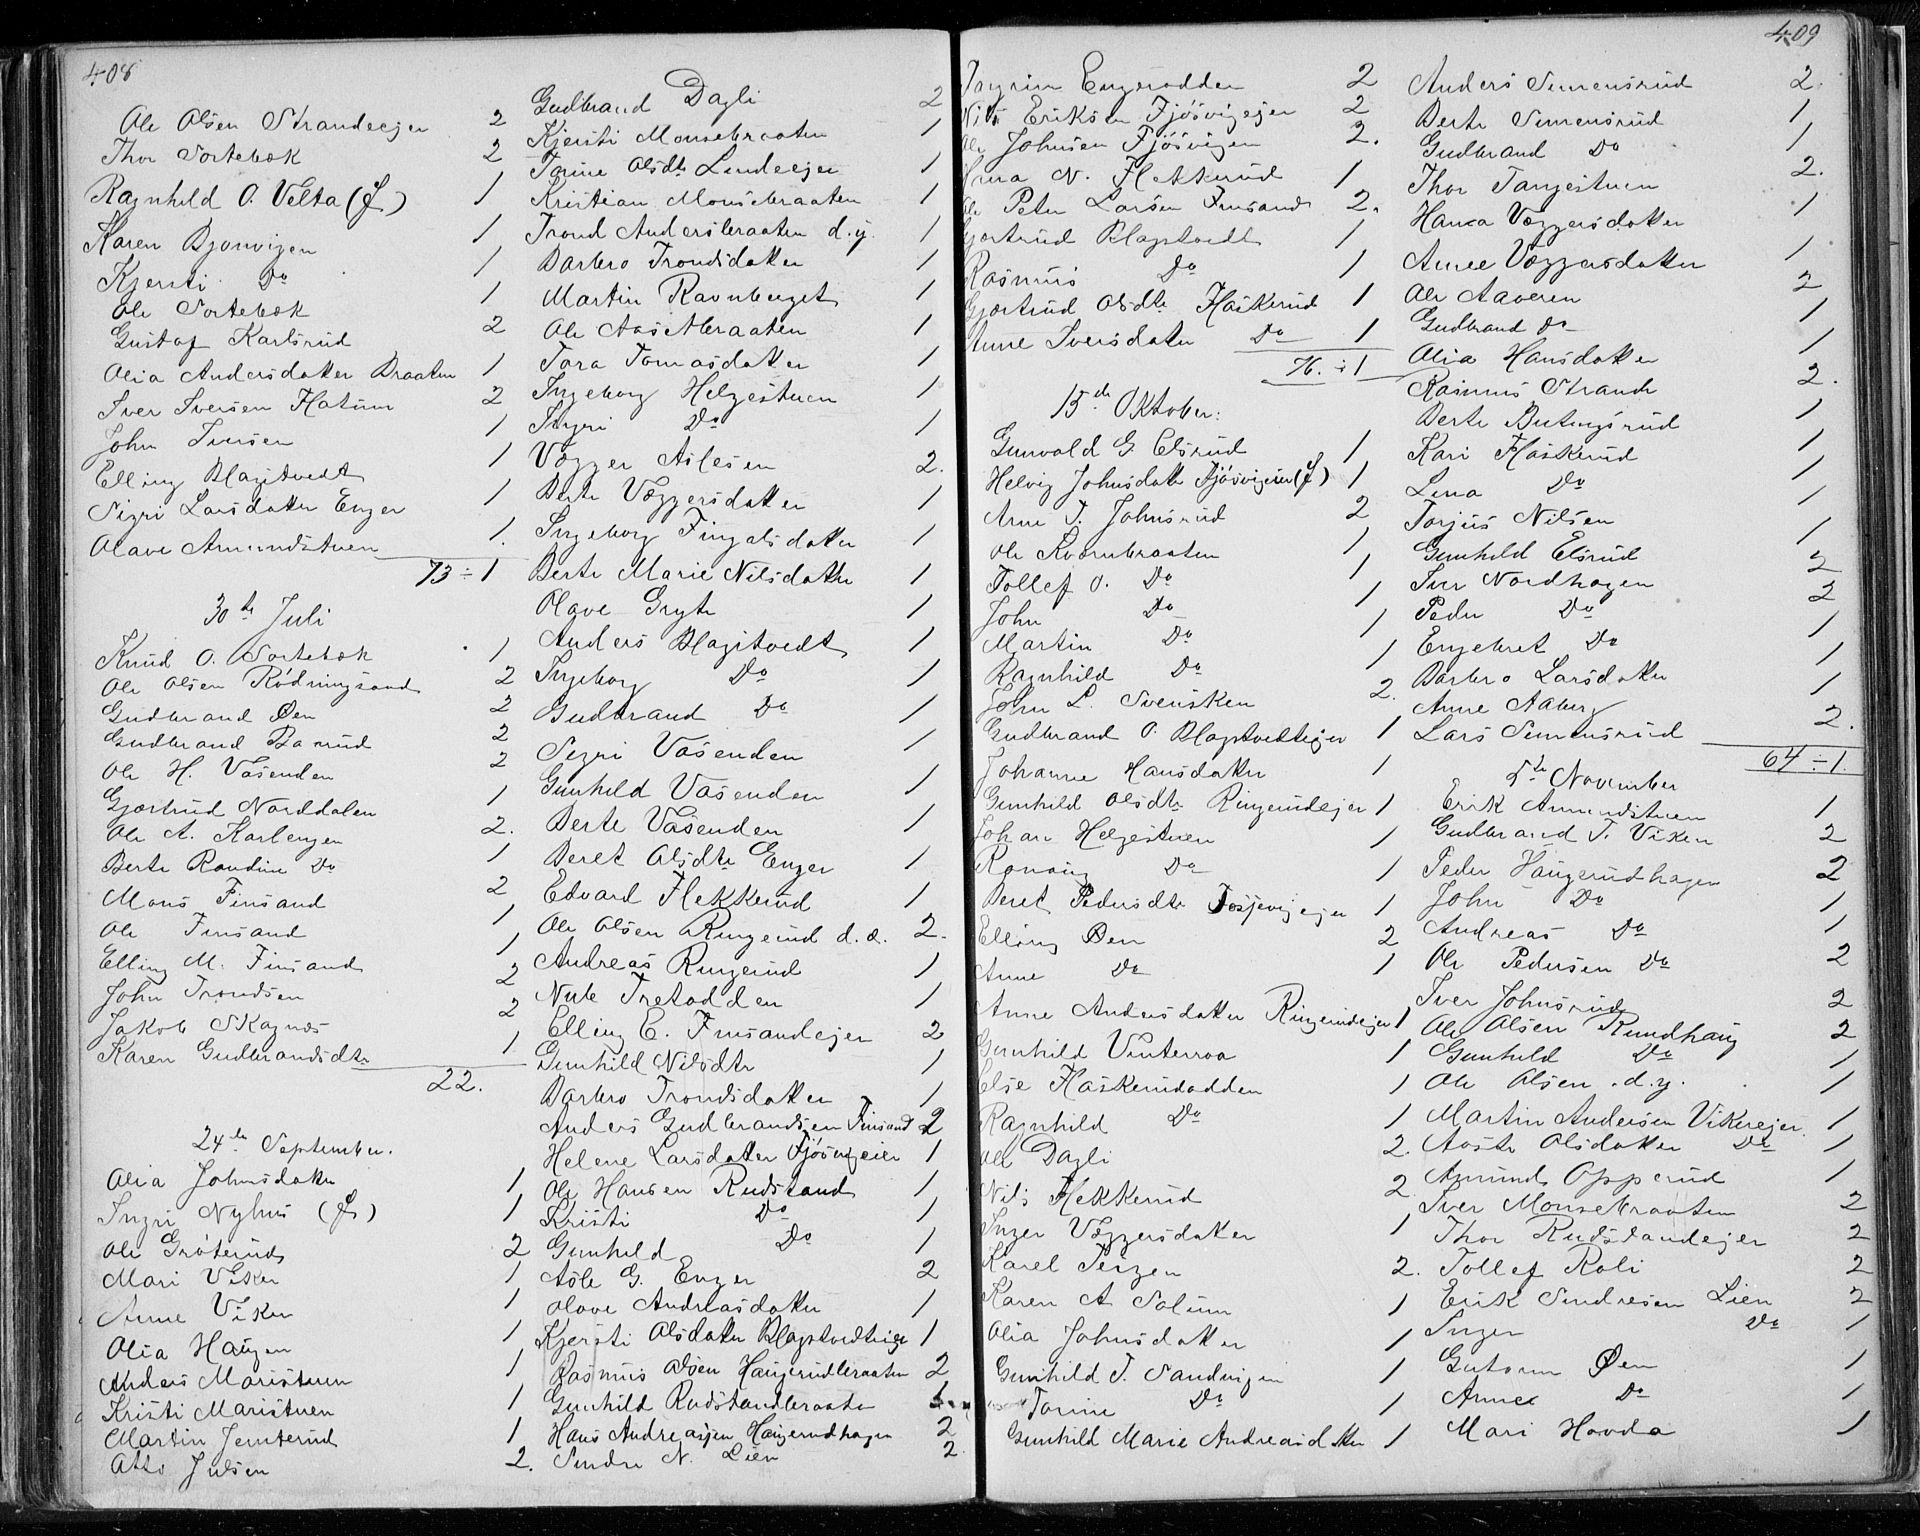 408
Ole Olsen Strandeejer 2
Thor Sortebæk 2
Ragnhild O. Velta (f) 1
Karen Bjonvigen 1
Kjersti Do 1
Ole Sortebæk 1
Gustaf Karlsrud 2
Olia Andersdatter Braaten 1
Iver Iversen Flatum 2
John Iversen 1
Elling Blagstvedt 1
Sigri Larsdatter Enger 1
Olave Amundstuen 1.
73 ÷ 1
30te Juli
Knud O. Sortebæk 1
Ole Olsen Rødningsand 2
Gudbrand Øen 2
Gudbrand Barud 2
Ole H. Vasenden 2
Gjærtrud Norddalen 1
Ole A. Karlengen 2.
Berte Randine Do 1
Mons Finsand 2
Ole Finsand 1
Elling M. Finsand 1
John Trondsen 2
Jakob Skagnæs 2
Karen Gudbrandsdtr 1
22.
24de September.
Olia Johnsdatter 1
Ingri Nyhus (f) 1
Ole Grøterud 2
Mari Viker 1
Anne Viker 1
Olia Haugen 1
Anders Maristuen 1
Kristi Maristuen 1
Martin Jemterud 1
Atto Julsen 2.
Gudbrand Dagli 2
Kjersti Monsebraaten 1
Torine Olsdtr Lindeejer 1
Kristian Monsebraaten 1
Trond Andersbraaten d.y. 1
Barbro Trondsdatter 1
Martin Ravnberget 1
Ole Aasebraaten 1
Tora Tomasdatter 1
Ingeborg Helgestuen 1
Ingri Do 1
Vegger Aslesen 2.
Berte Veggersdatter 1
Ingeborg Fingalsdatter 1
Berte Marie Nilsdatter 1
Olave Gryte 1
Anders Blagstvedt 1
Ingeborg Do 1
Gudbrand Do 1
Sigri Vasenden 1
Gunhild Vasenden 1
Berte Vasenden 1
Beret Olsdtr Enger 1
Edvard Flekkerud 1
Ole Olsen Ringerud d.æ. 2.
Andreas Ringerud 1
Nub Tretodden 1
Elling E. Finsandejer 2
Gunhild Nilsdtr 1
Barbro Trondsdatter 1
Anders Gudbrandsen Finsand 2
Helene Larsdatter Fjøsvigeier 1
Ole Hansen Rudstand 1
Kristi Do 1
Gunhild Do 1
Asle G. Enger 2
Olave Andreasdatter 1
Kjersti Olsdatter Blagstvedteige 1
Rasmus Olsen Haugerudbraaten 2
Gunhild Rudstandbraaten 1
Hans Andreassen Haugerudhagen 2
Sindre N. Lien 2
409
Torgrim Engerodden 2
Nils Eriksen Fjøsvigejer 2
Ole Johnsen Fjøsvigen 2.
N. Flekkerud 1
Ole Peter Larsen Finsand 2.
Gjørtrud Blagstvedt 1
Rasmus Do 1
Gjørtrud Olsdtr Haskerud 1
Anne Iversdatter Do 1
76. ÷ 1
15de Oktober:
Gunvald G. Elsrud 1
Helvig Johnsdatter Fjøsvigeier (f) 1
Arne T. Johnsrud 2
Ole Kvernbraaten 1
Tollef O. Do 1
John Do 1
Martin Do 1
Ragnhild Do 1
John L. Svensken 2.
Gudbrand O. Blagstvedteigen 1
Johanne Hansdatter 1
Gunhild Olsdtr Ringerudejer 1
Johan Helgestuen 1
Rønnaug Do 1
Beret Pedersdtr Fosjevigejer 1
Elling Øen 2
Anne Do 1
Anne Andersdatter Ringerudejer 1
Gunhild Vinterroa 1
Else Haskerudodden 1
Ragnhild Do 1
Ole Dagli 2.
Nils Flekkerud 2
Inger Veggersdatter 1
Karel Teigen 2.
Karen A Solum 1
Olia Johnsdatter 1
Gunhild T. Sandvigen 1
Torine Do 1
Gunhild Marie Andreasdatter 1
Anders Simensrud 2.
Berte Simensrud 1
Gudbrand Do 1
Thor Tangestuen 2.
Hanna Veggersdatter 1
Anne Veggersdatter 1
Ole Aaveren 2
Gudbrand do 1
Olia Hansdatter 1
Rasmus Strande 2.
Berte Butingsrud 1
Kari Haskerud 1
Lena Do 1
Torjus Nilsen 1
Gunhild Elsrud 1
Iver Nordhagen 2
Peder Do 2
Engebret Do 1
Barbro Larsdatter 1
Anne Aaberg 1
Lars Simensrud 2.
64 ÷ 1.
5te November
Erik Amundstuen 1
Gudbrand T. Viken 2
Peder Haugerudhagen 2
John Do 1
Andreas Do 1
Ole Pedersen Do 2
Iver Johnsrud 2
Ole Olsen Rundhaug 2
Gunhild Do 1
Ole Olsen d.y. 1
Martin Andersen Vikerejer 1
Aaste Olsdatter Do 1
Amund Opperud 1
Iver Monsebraaten 2
Thor Rudstandejer 2
Tollef Roli 2
Erik Sindresen Lien 2
Inger Do 1
Gutorm Øen 1
Anne Do 1
Mari Hovda 1